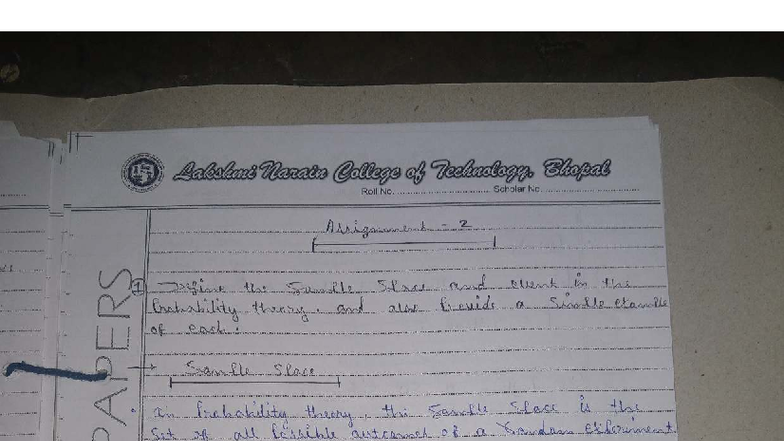 Lakshmi Narain College of Technology, Bhopal
Roll No. Scholar No.
Assignment - 2
1 Define the Sample Space and event in the
Probability theory. and also Provide a Simple example
of each.
Sample Space
In Probability theory, the Sample Space is the
Set of all Possible outcomes of a random experiment
PAPERS